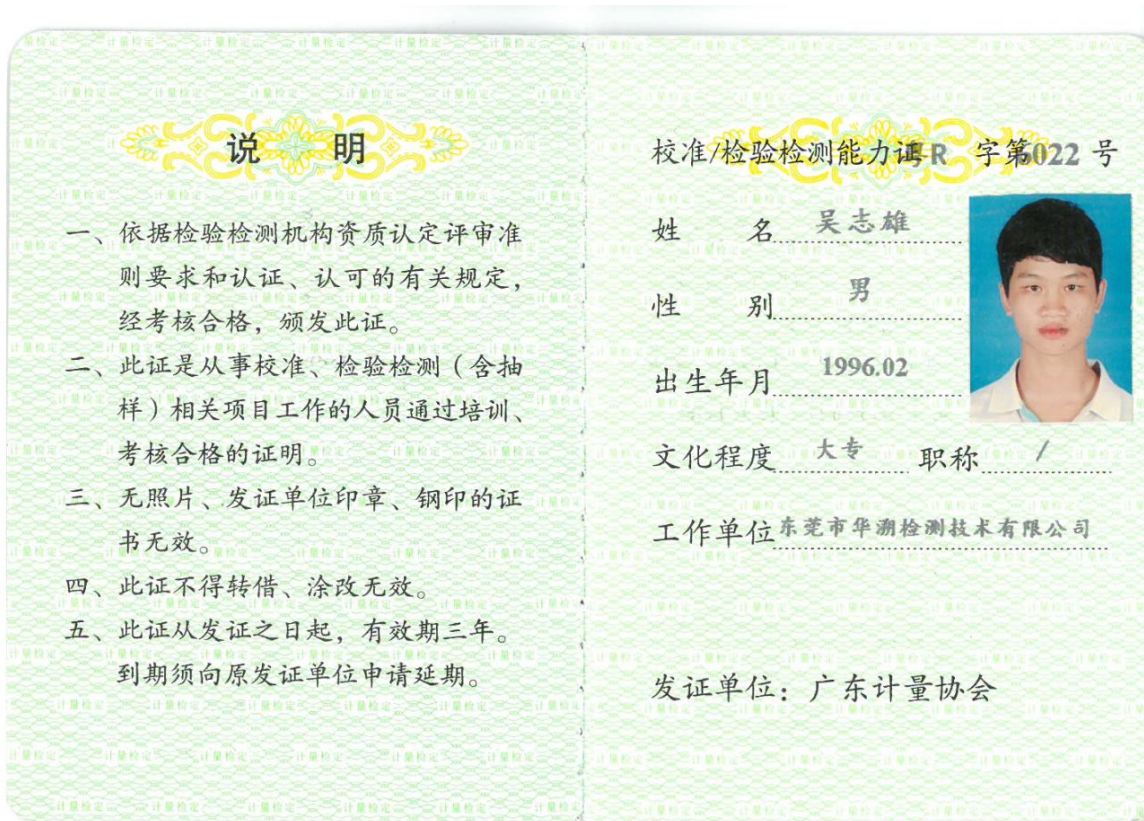 说 明
一、依据检验检测机构资质认定评审准
则要求和认证、认可的有关规定，
经考核合格，颁发此证。
二、此证是从事校准、检验检测（含抽
样）相关项目工作的人员通过培训、
考核合格的证明。
三、无照片、发证单位印章、钢印的证
书无效。
四、此证不得转借、涂改无效。
五、此证从发证之日起，有效期三年。
到期须向原发证单位申请延期。
校准/检验检测能力证粤R 字第5022 号
姓 名 吴志雄
性 别 男
出生年月 1996.02
文化程度 大专 职称 /
工作单位 东莞市华溯检测技术有限公司
发证单位：广东计量协会